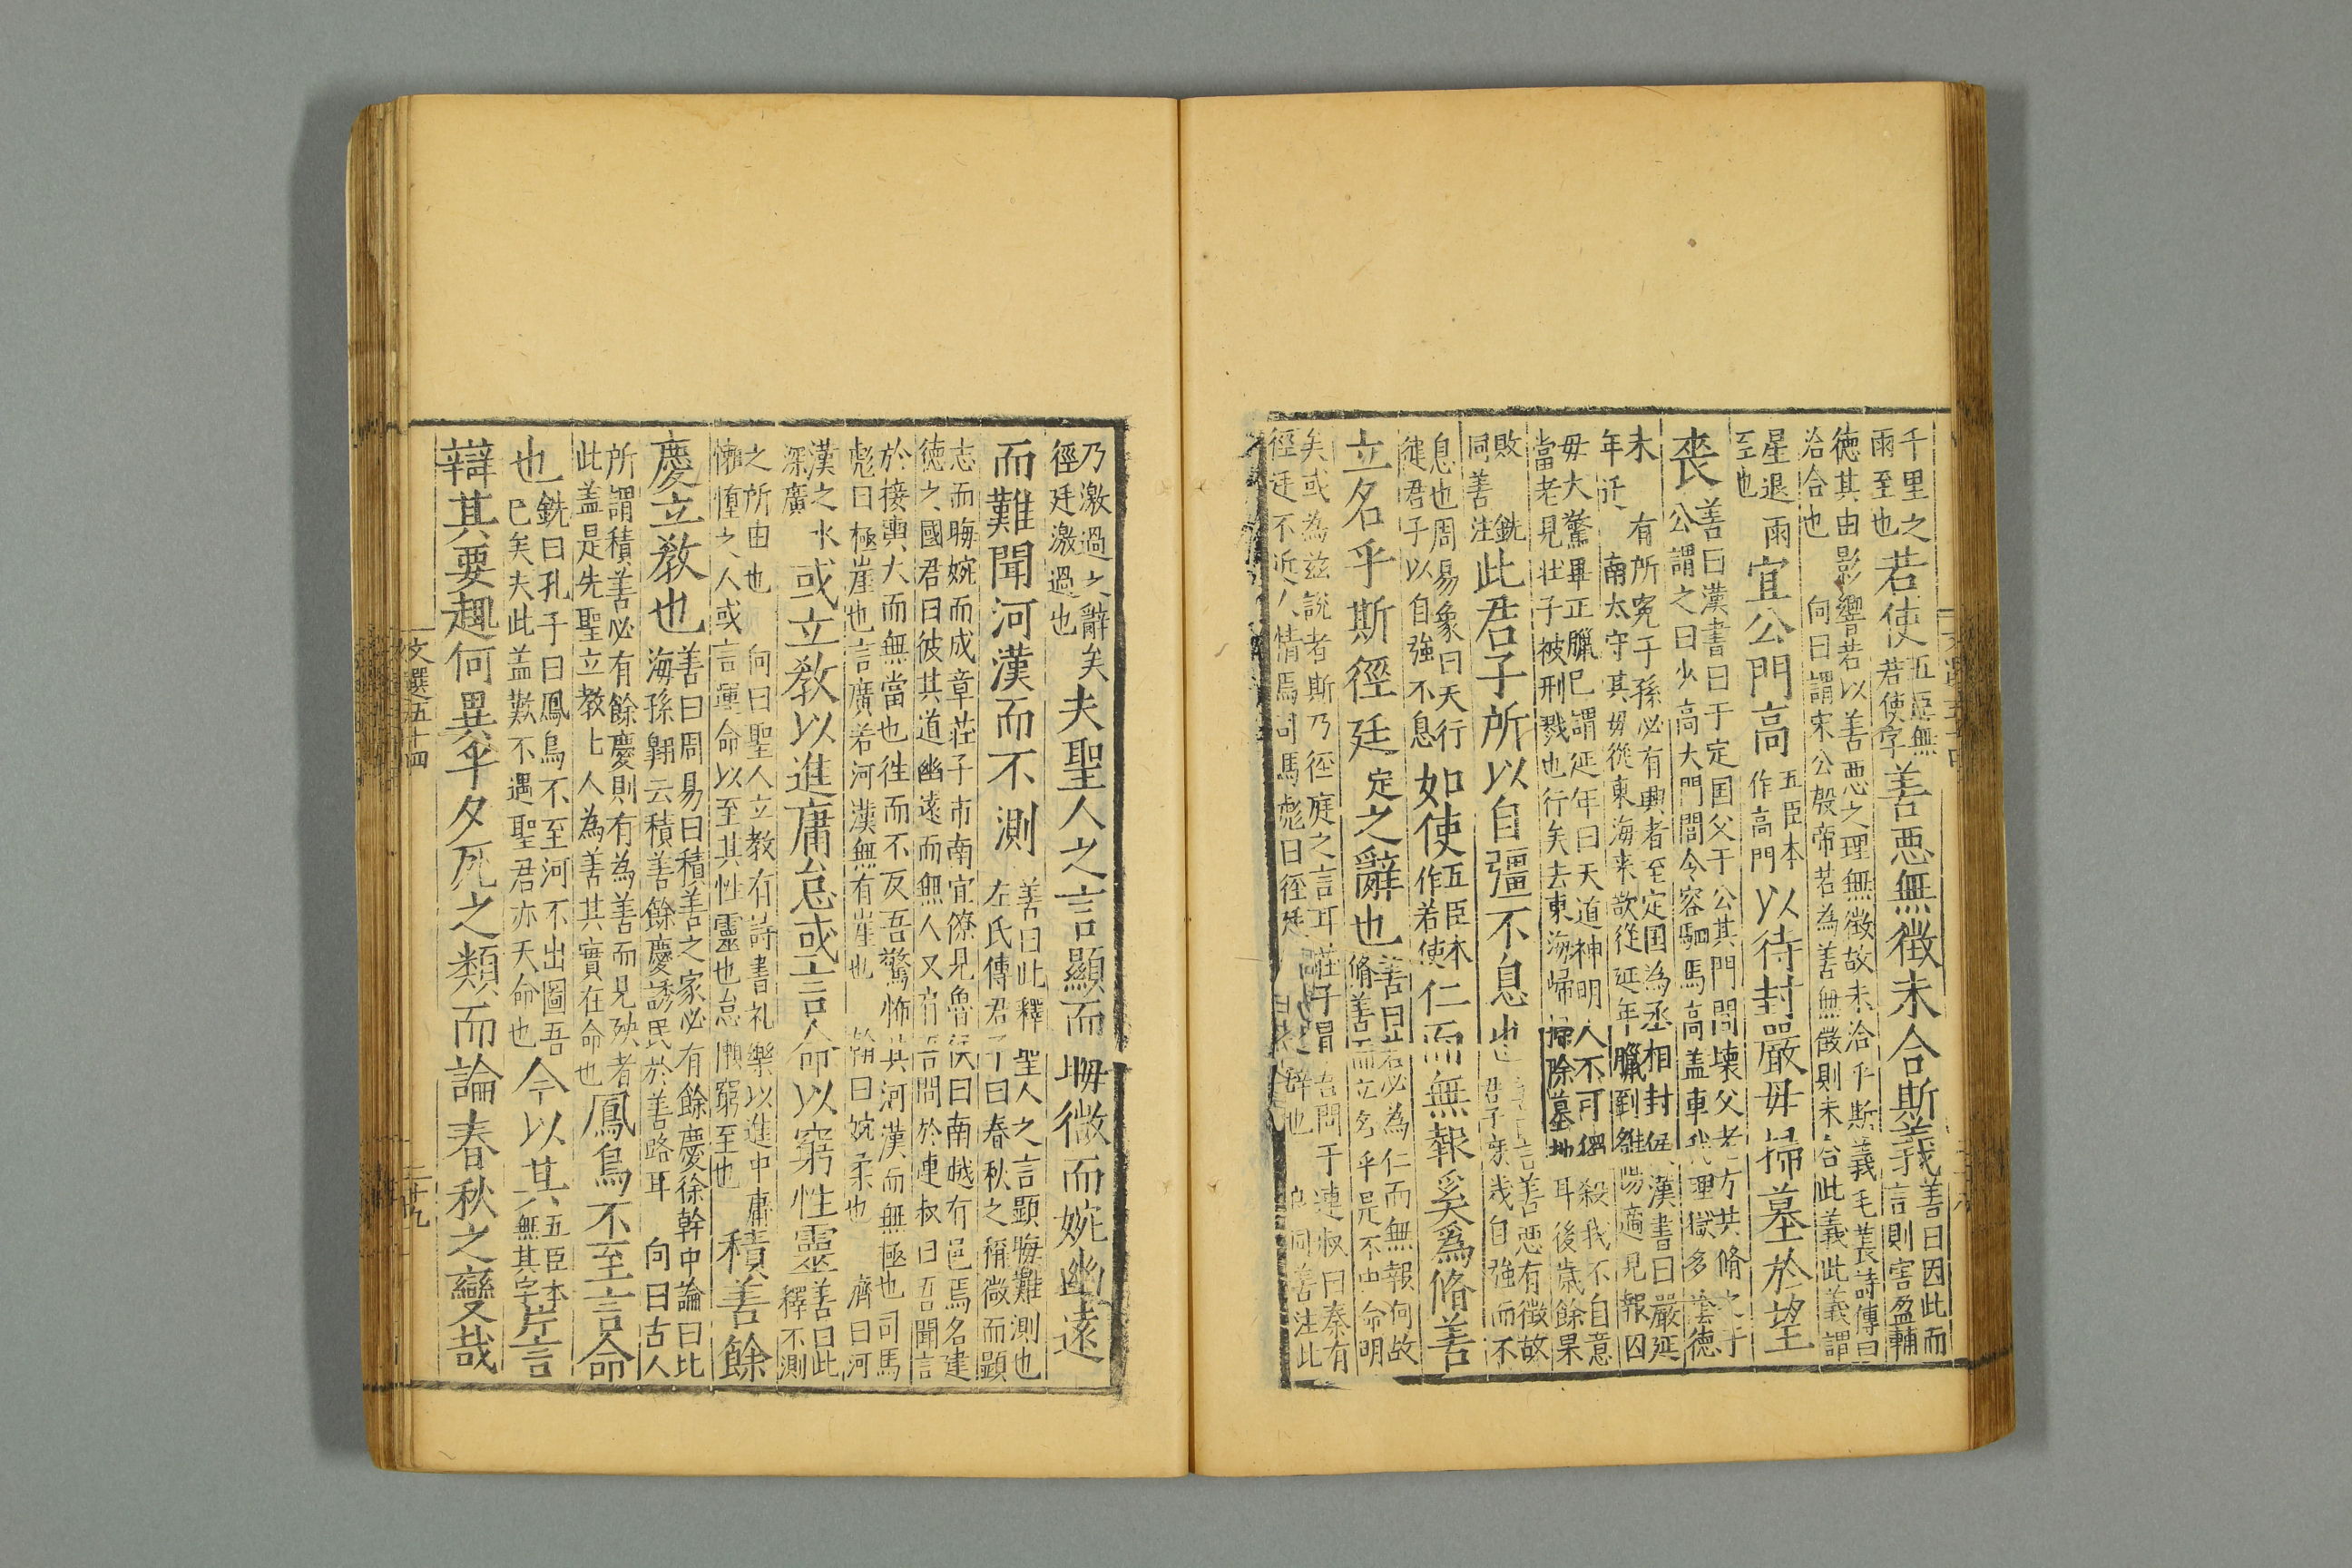 千里之雨至也若使五臣無若使字善悪無徵未合斯義善曰因此而言則害盈輔
德其由影響若以善悪之理無徵故未洽乎斯義毛萇詩傳曰洽合也向曰謂宋公殷帝若為善無徵則未合此義此義謂
星退雨至也宜公門高五臣本作高門以待封嚴毋掃墓於望
喪善曰漢書曰于定国父于公其門閭壊父老方共脩之于公謂之曰少高大門閭令容駟馬高盖車我理獄多隂德
未有所寃子孫必有興者至定国為丞相封侯漢書曰嚴延年迁南太守其毋從東海来欲從延年臘到雒陽適見報囚
毋大驚畢正臘已謂延年曰天道神明人不可獨殺我不自意當老見壮子被刑戮也行矣去東海歸掃除墓地耳後歳餘果
敗銑同善注此君子所以自彊不息也言善悪有徵故君子庻幾自強而不
息也周易象曰天行健君子以自強不息如使五臣本作若使仁而無報奚爲脩善
立名乎斯徑廷定之辭也善曰若必為仁而無報何故脩善而立名乎是不由命明
矣或為兹說者斯乃徑庭之言耳莊子肩吾問于連叔曰秦有徑廷不近人情焉司馬彪曰徑廷激過之辭也良同善注此
乃激過之辭矣徑廷激過也夫聖人之言顯而晦微而婉幽遠
而難聞河漢而不測善曰此釋聖人之言顯晦難測也左氏傳君子曰春秋之稱微而顯
志而晦婉而成章莊子市南宜僚見魯侯曰南越有邑焉名建德之國君曰彼其道幽遠而無人又肩吾問於連叔曰吾聞言
於接輿大而無當也徃而不反吾驚怖其河漢而無極也司馬彪曰極崖也言廣若河漢無有崖也翰曰婉柔也濟曰河
漢之水深廣或立教以進庸怠或言命以窮性靈善曰此釋不測
之所由也向曰聖人立教有詩書礼樂以進中庸懶惰之人或言運命以至其性靈也怠懶窮至也積善餘
慶立教也善曰周易曰積善之家必有餘慶徐幹中論曰北海孫翱云積善餘慶誘民於善路耳向曰古人
所謂積善必有餘慶則有為善而見殃者此盖是先聖立教上人為善其實在命也鳳鳥不至言命
也銑曰孔子曰鳳鳥不至河不出圖吾已矣夫此盖歎不遇聖君亦天命也今以其五臣本無其字片言
辯其要趣何異乎夕死之類而論春秋之變哉
文選五十四
二十九